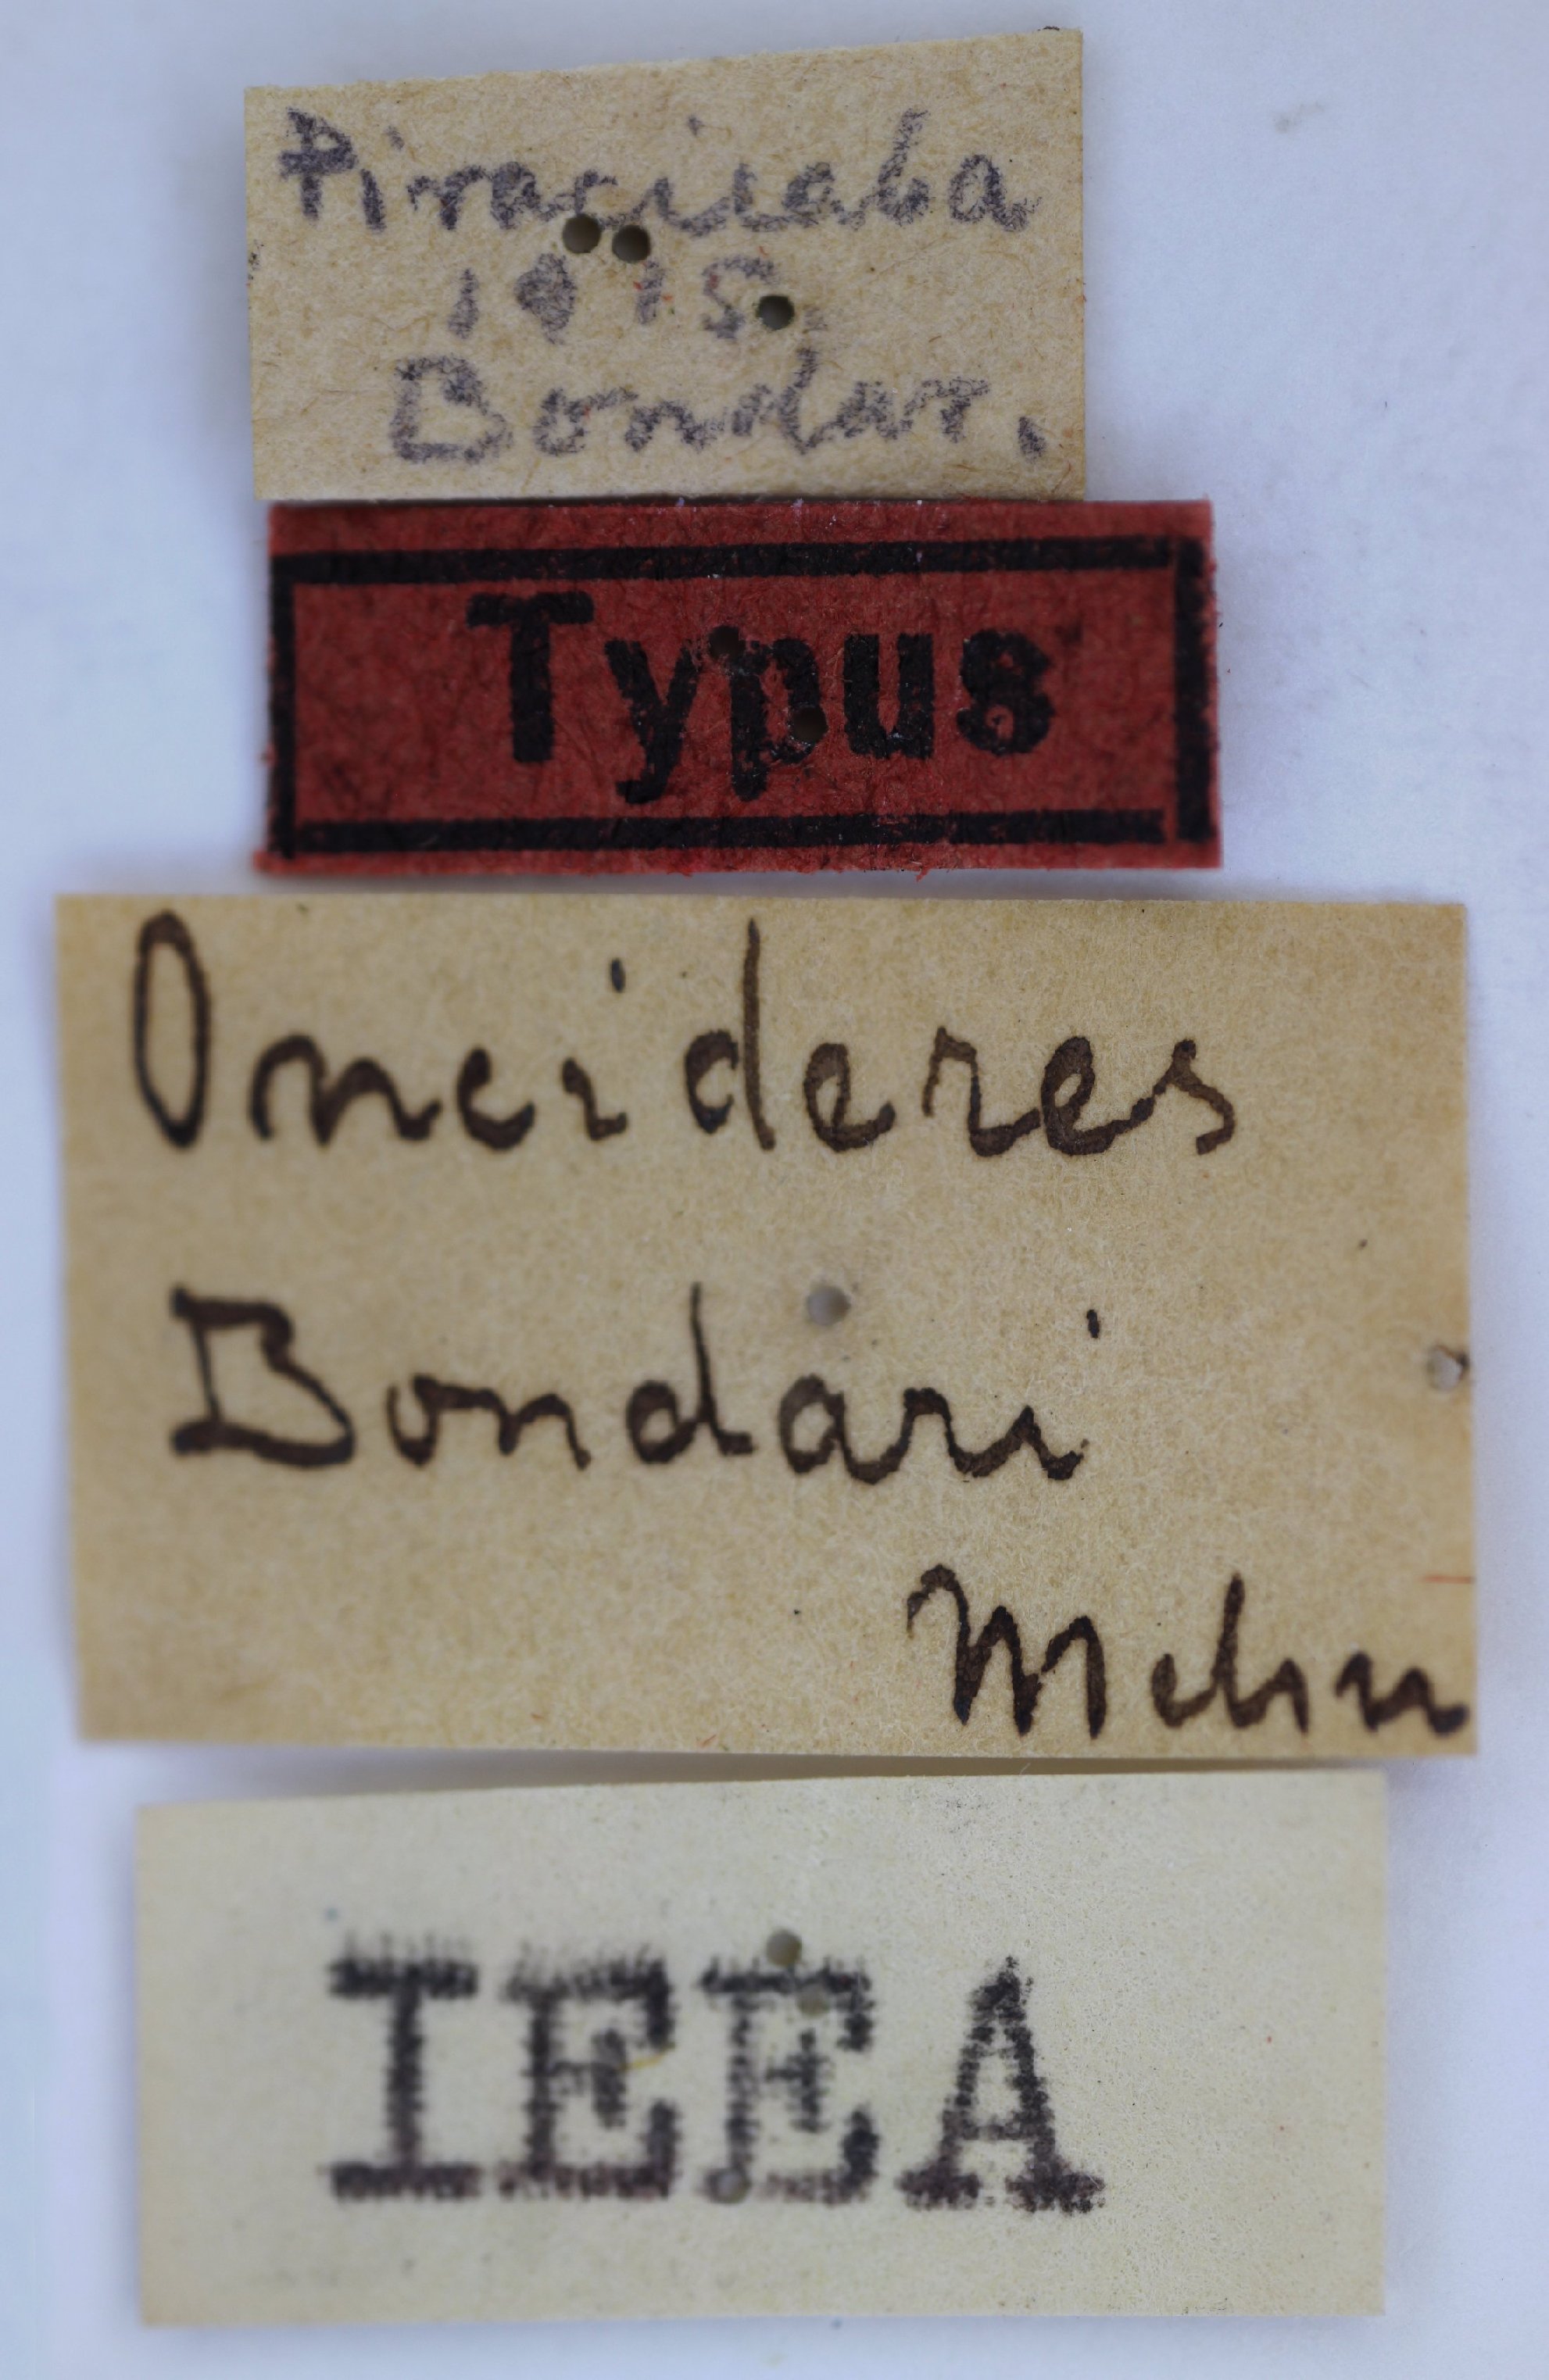 Piracicaba
1915
Bondar.
Typus
Oncideres
Bondari
Melzer
IEEA